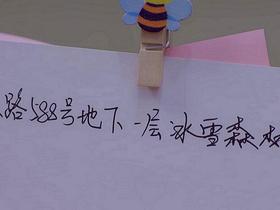 路588号地下一层冰雪森林